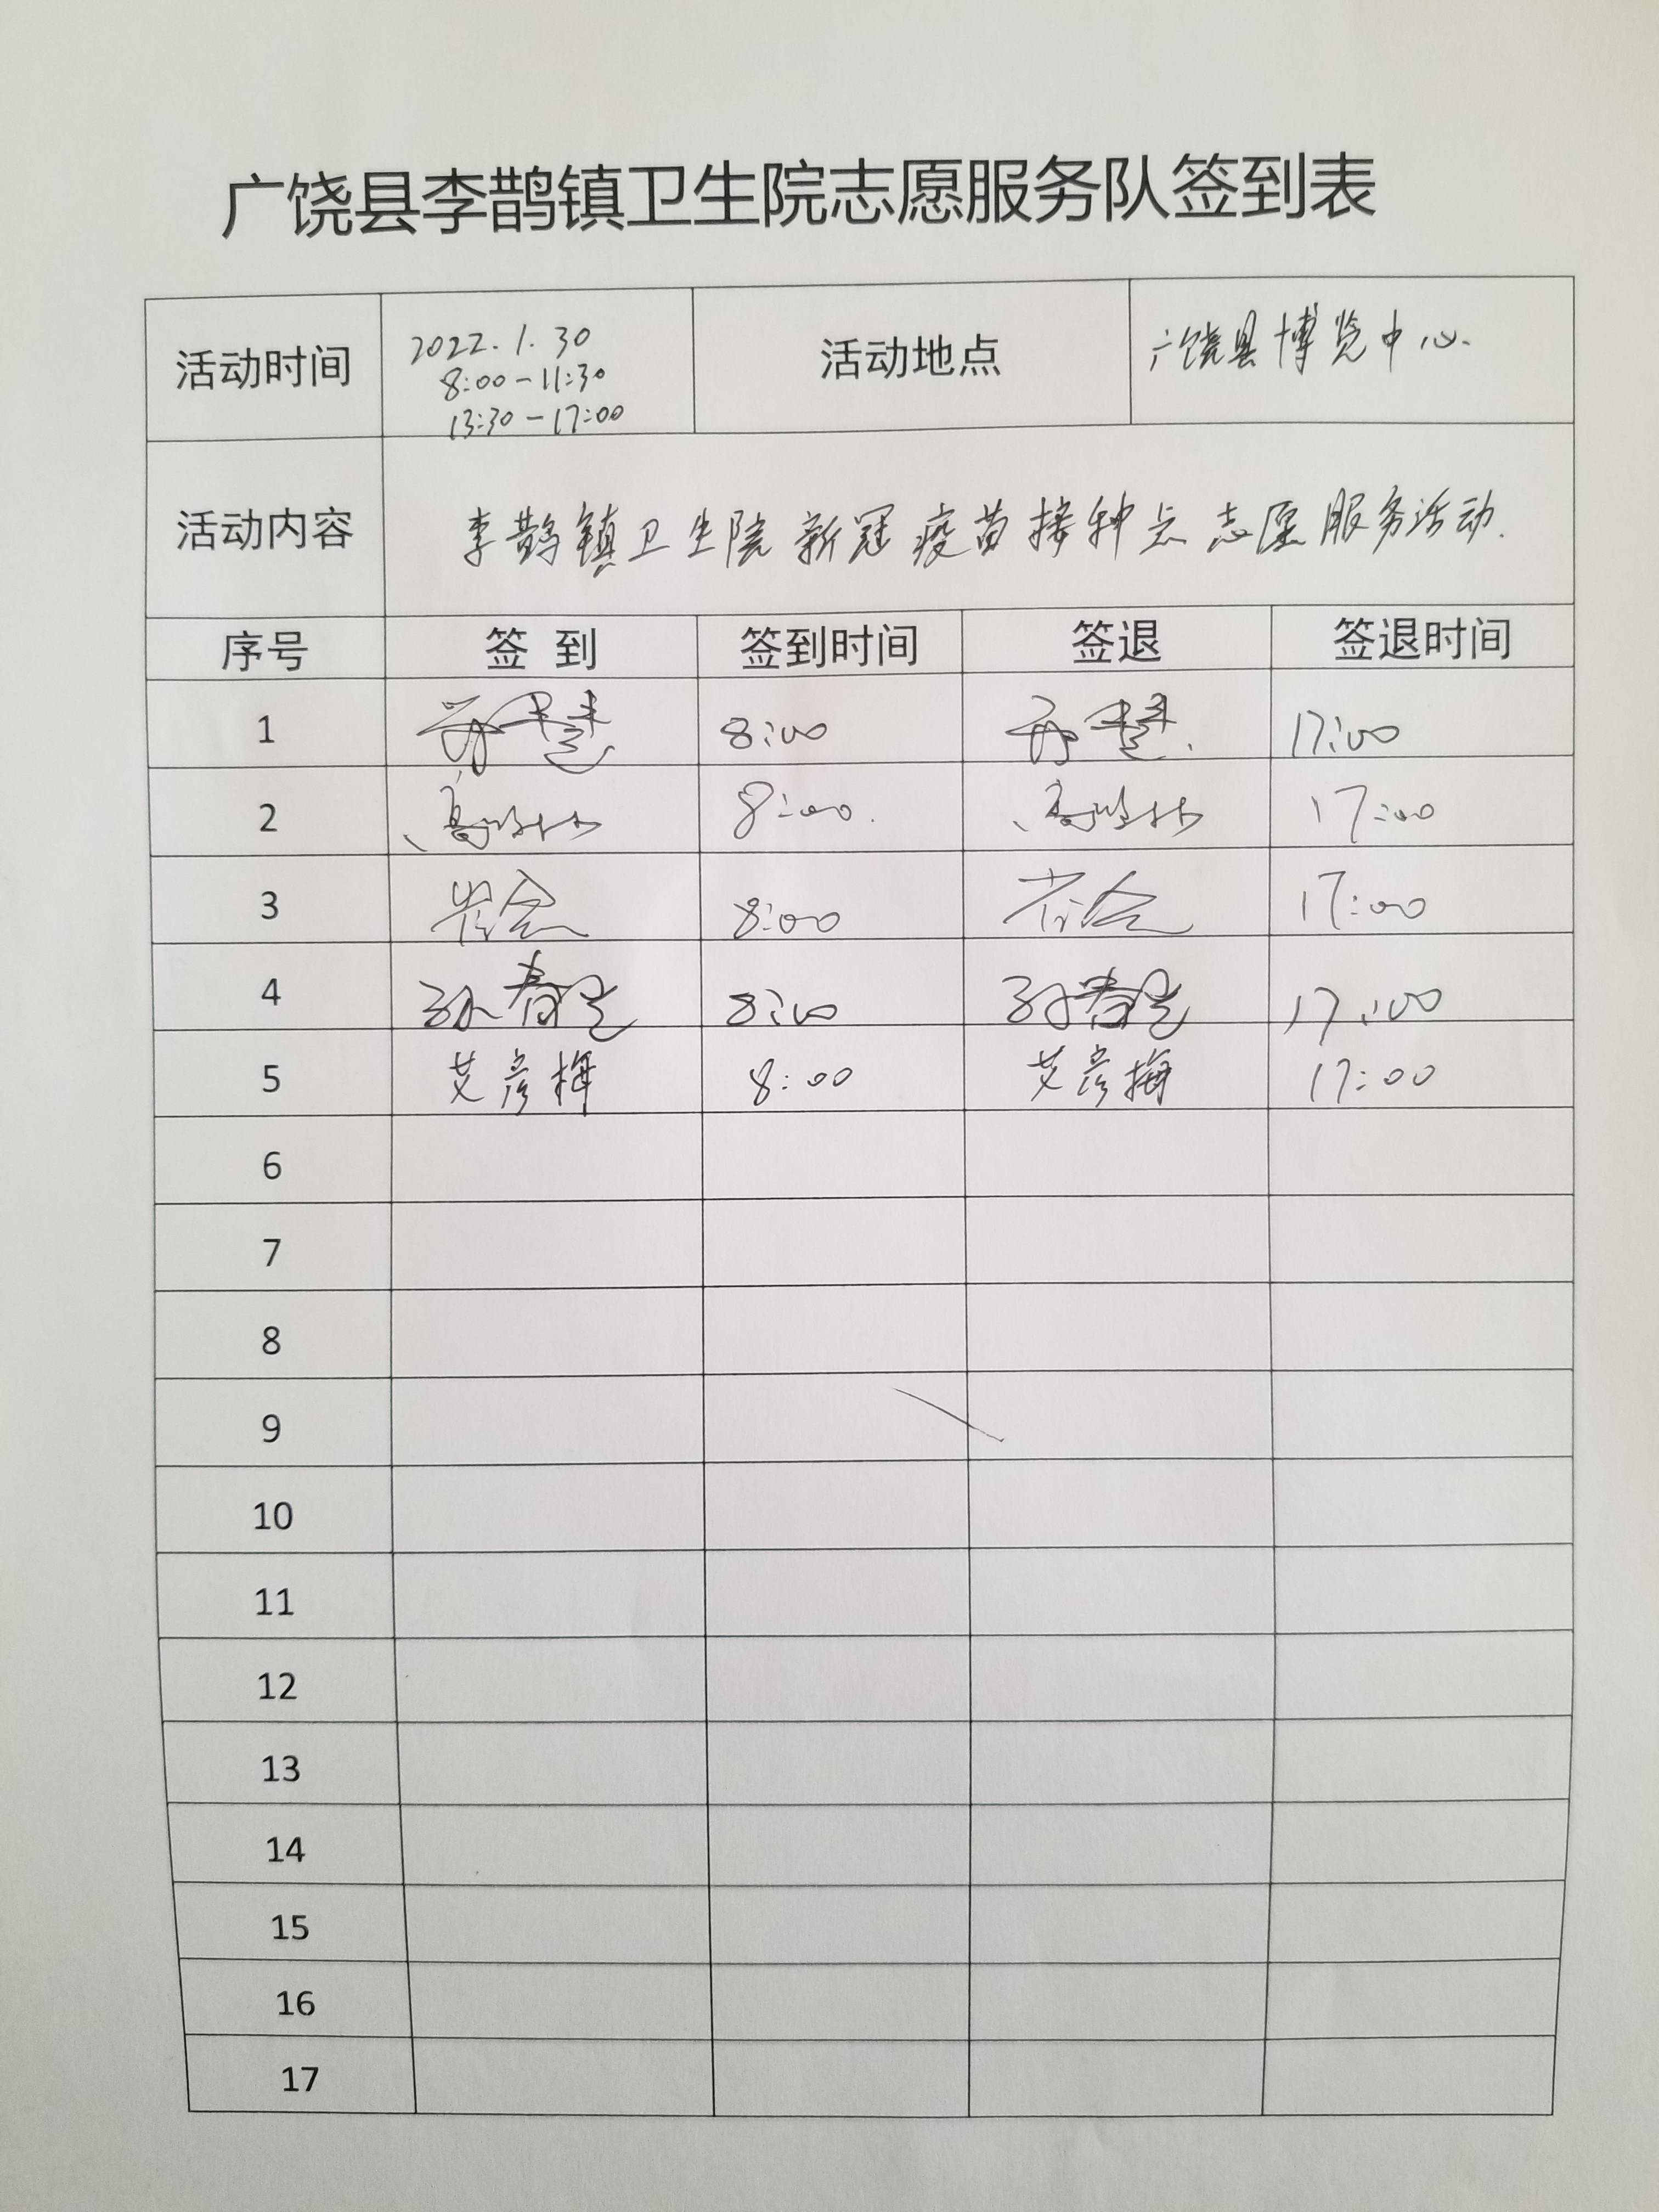 广饶县李鹊镇卫生院志愿服务队签到表
活动时间 2022.1.30 活动地点 广饶县博览中心.
8:00-11:30
13:30-17:00
活动内容 李鹊镇卫生院新冠疫苗接种点志愿服务活动.
序号 签 到 签到时间 签退 签退时间
1 8:00 17:00
2 8:00. 17:00
3 8:00 17:00
4 8:00 17:00
5 艾彦梅 8:00 艾彦梅 17:00
6
7
8
9
10
11
12
13
14
15
16
17